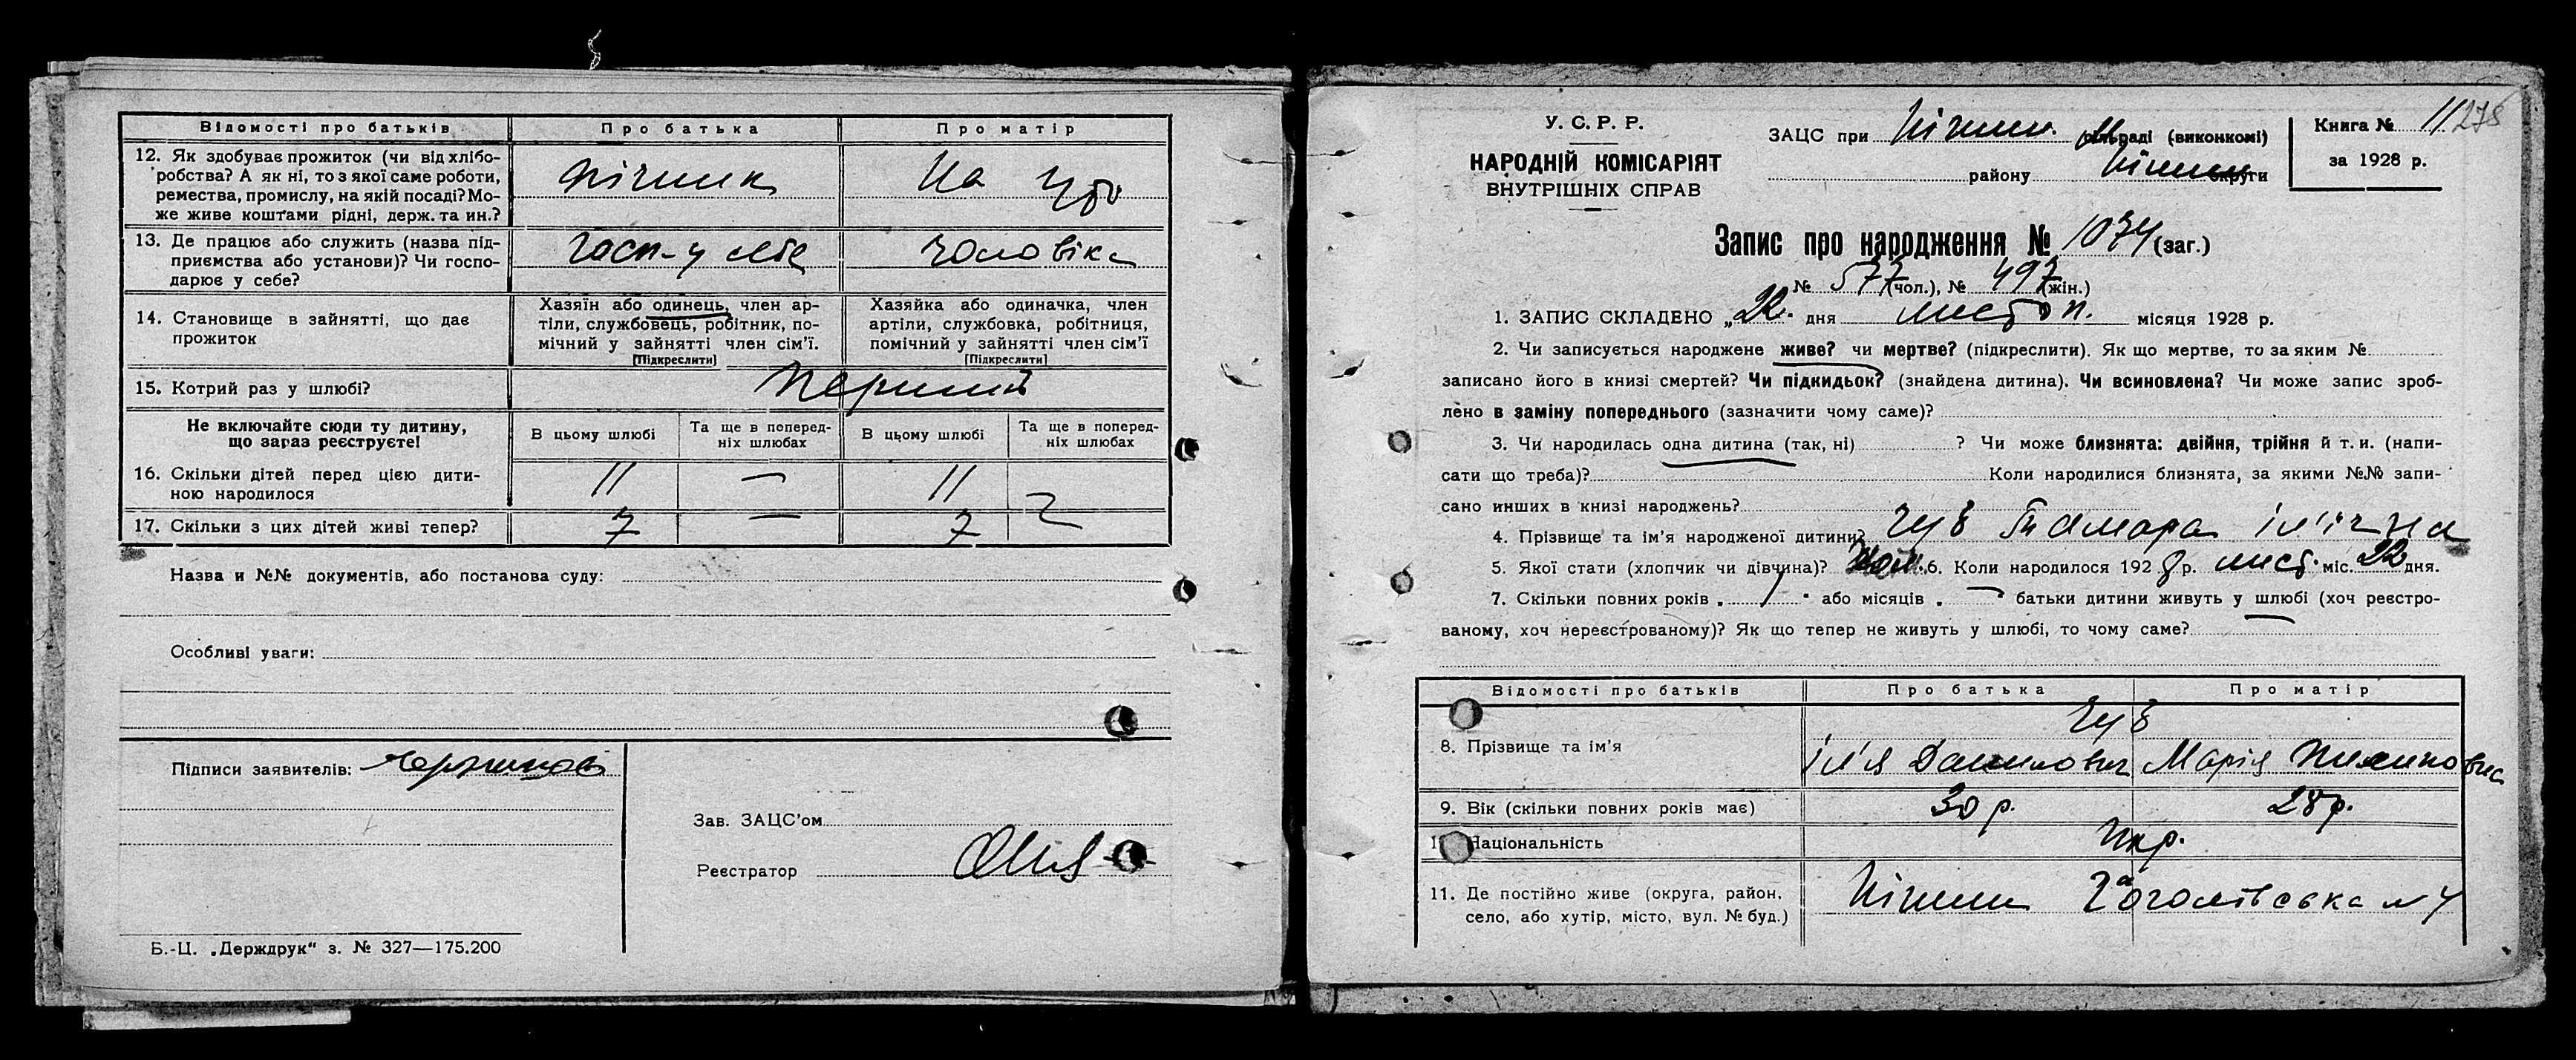 Відомості про батьків
Про батька
Про матір
12. Як здобуває прожиток (чи від хлібо-
робства? А як ні, то з якої саме роботи,
ремества, промислу, на якій посаді? Мо-
же живе коштами рідні, держ. та ин.?
пічник
На утр
13. Де працює або служить (назва під-
приємства або установи)? Чи госпо-
дарює у себе?
госп-у себе
чоловіка
14. Становище в зайнятті, що дає
прожиток
Хазяїн або одинець, член ар-
тілі, службовець, робітник, по-
мічний у зайнятті член сім'ї.
[Підкреслити]
Хазяйка або одиначка, член
артілі, службовка, робітниця,
помічний у зайнятті член сім'ї
[Підкреслити]
15. Котрий раз у шлюбі?
Перший
Не включайте сюди ту дитину,
що зараз реєструєте!
В цьому шлюбі
Та ще в поперед-
ніх шлюбах
В цьому шлюбі
Та ще в поперед-
ніх шлюбах
16. Скільки дітей перед цією дити-
ною народилося
11 — 11
17. Скільки з цих дітей живі тепер?
7 — 7
Назва и №№ документів, або постанова суду:
Особливі уваги:
Підписи заявителів:
Зав. ЗАЦС'ом
Реєстратор
Б.-Ц. „Держдрук“ з. № 327—175.200
У. С. Р. Р.
НАРОДНІЙ КОМІСАРІЯТ
ВНУТРІШНІХ СПРАВ
ЗАЦС при Ніжин. М раді (виконкомі)
району Ніжин округи
Книга № 11
275
за 1928 р.
Запис про народження № 1074 (заг.)
№ 577 (чол.), № 497 (жін.)
1. ЗАПИС СКЛАДЕНО „22. дня листоп. місяця 1928 р.
2. Чи записується народжене живе? чи мертве? (підкреслити). Як що мертве, то за яким №
записано його в книзі смертей? Чи підкидьок? (знайдена дитина). Чи всиновлена? Чи може запис зроб-
лено в заміну попереднього (зазначити чому саме)?
3. Чи народилась одна дитина (так, ні) ? Чи може близнята: двійня, трійня й т. и. (напи-
сати що треба)? Коли народилися близнята, за якими №№ запи-
сано инших в книзі народжень?
4. Прізвище та ім'я народженої дитини? Гуз Тамара Іллічна
5. Якої стати (хлопчик чи дівчина)? 6. Коли народилося 1928 р. лист. міс. 22 дня.
7. Скільки повних років „ 1 “ або місяців „ — “ батьки дитини живуть у шлюбі (хоч реєстро-
ваному, хоч нереєстрованому)? Як що тепер не живуть у шлюбі, то чому саме?
Відомості про батьків
Про батька
Про матір
8. Прізвище та ім'я
Гуз
Ілля Данилович
Марія
9. Вік (скільки повних років має)
30 р.
28 р.
Національність
Укр.
11. Де постійно живе (округа, район,
село, або хутір, місто, вул. № буд.)
Ніжин Гоголівська № 4